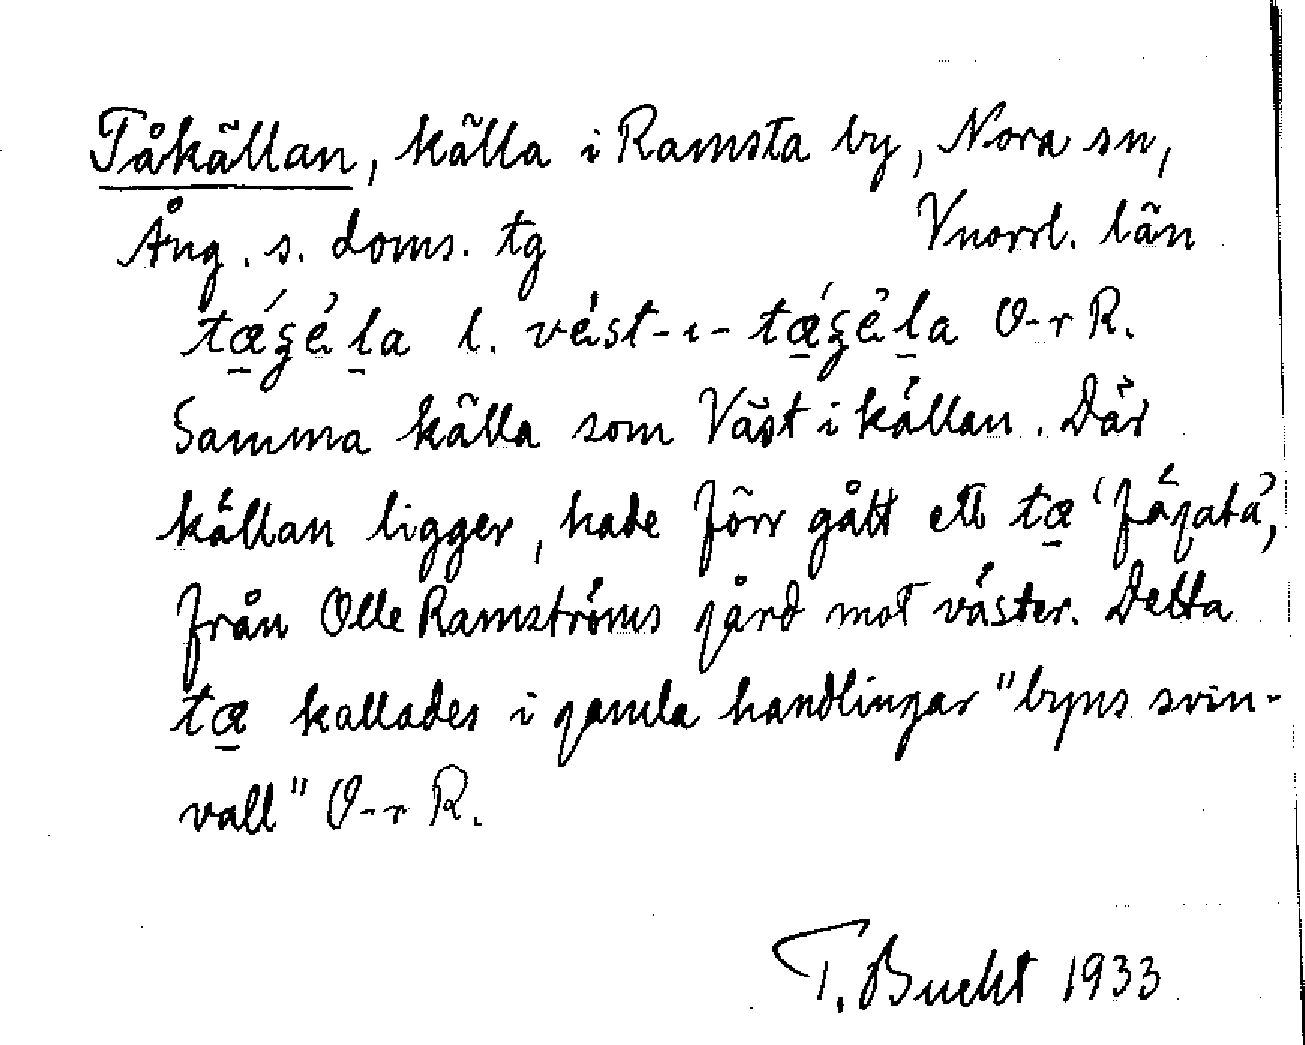 Tåkällan, källa i Ramsta by, Nora sn,
Ång. s. doms. tg Vnorrl. län
tǽʒèla l. vést-ı-tǽʒèla O-r R.
Samma källa som Västikällan. Där
källan ligger, hade förr gått ett tæ 'fägata',
från Olle Ramströms gård mot väster. Detta
tæ kallades i gamla handlingar "byns svin-
vall" O-r R.
T. Bucht 1933